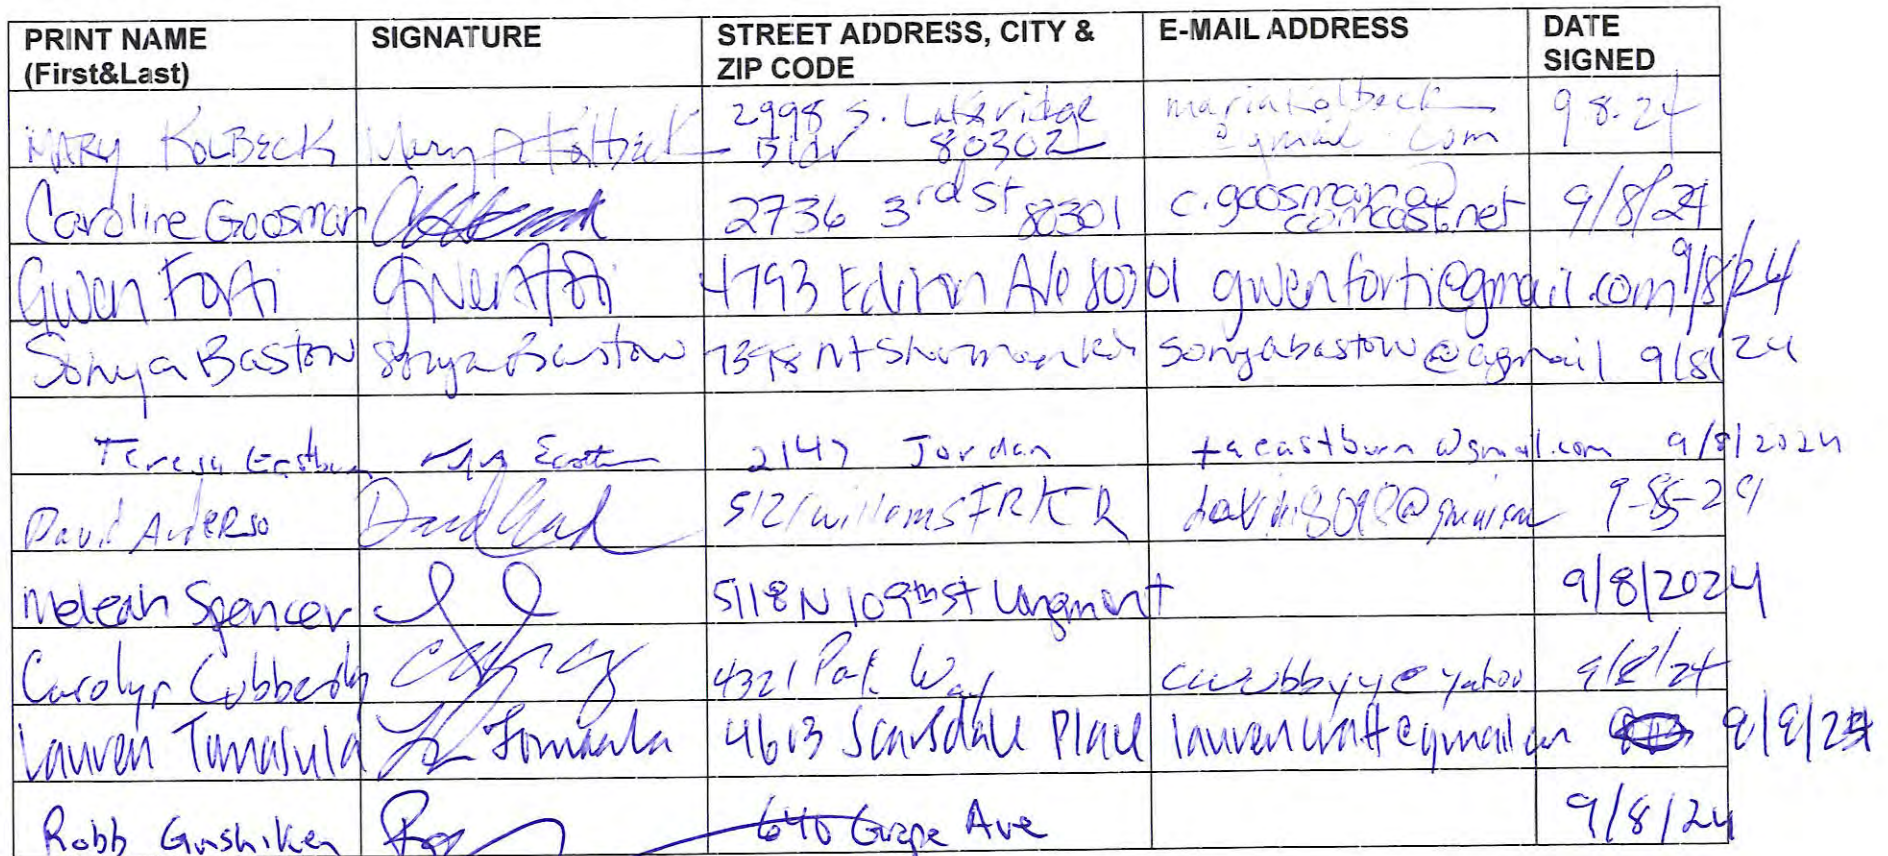 PRINT NAME (First&Last) SIGNATURE STREET ADDRESS, CITY & ZIP CODE E-MAIL ADDRESS DATE SIGNED
MARY KOLBECK Mary A Kolbeck 2998 S. Lakeridge Bldr 80302 mariakolbeck@gmail.com 9.8.24
Caroline Goosman 2736 3rd St 80301 c.goosman@comcast.net 9/8/24
Gwen Forti Gwen Forti 4793 Edison Ave 80301 gwenforti@gmail.com 9/8/24
Sonya Bastow Sonya Bastow sonyabastow@gmail 9/8/24
Teresa Eastburn 2147 Jordan taeastburn@gmail.com 9/8/2024
David Anderso 9-8-24
Melean Spencer 5118 N 109th St Longmont 9/8/2024
Carolyn Cubberly 4321 Park Way 9/8/24
Lauren Tomasula 4603 Scarsdale Place 9/8/24
Robb Gushiken 640 Grape Ave 9/8/24